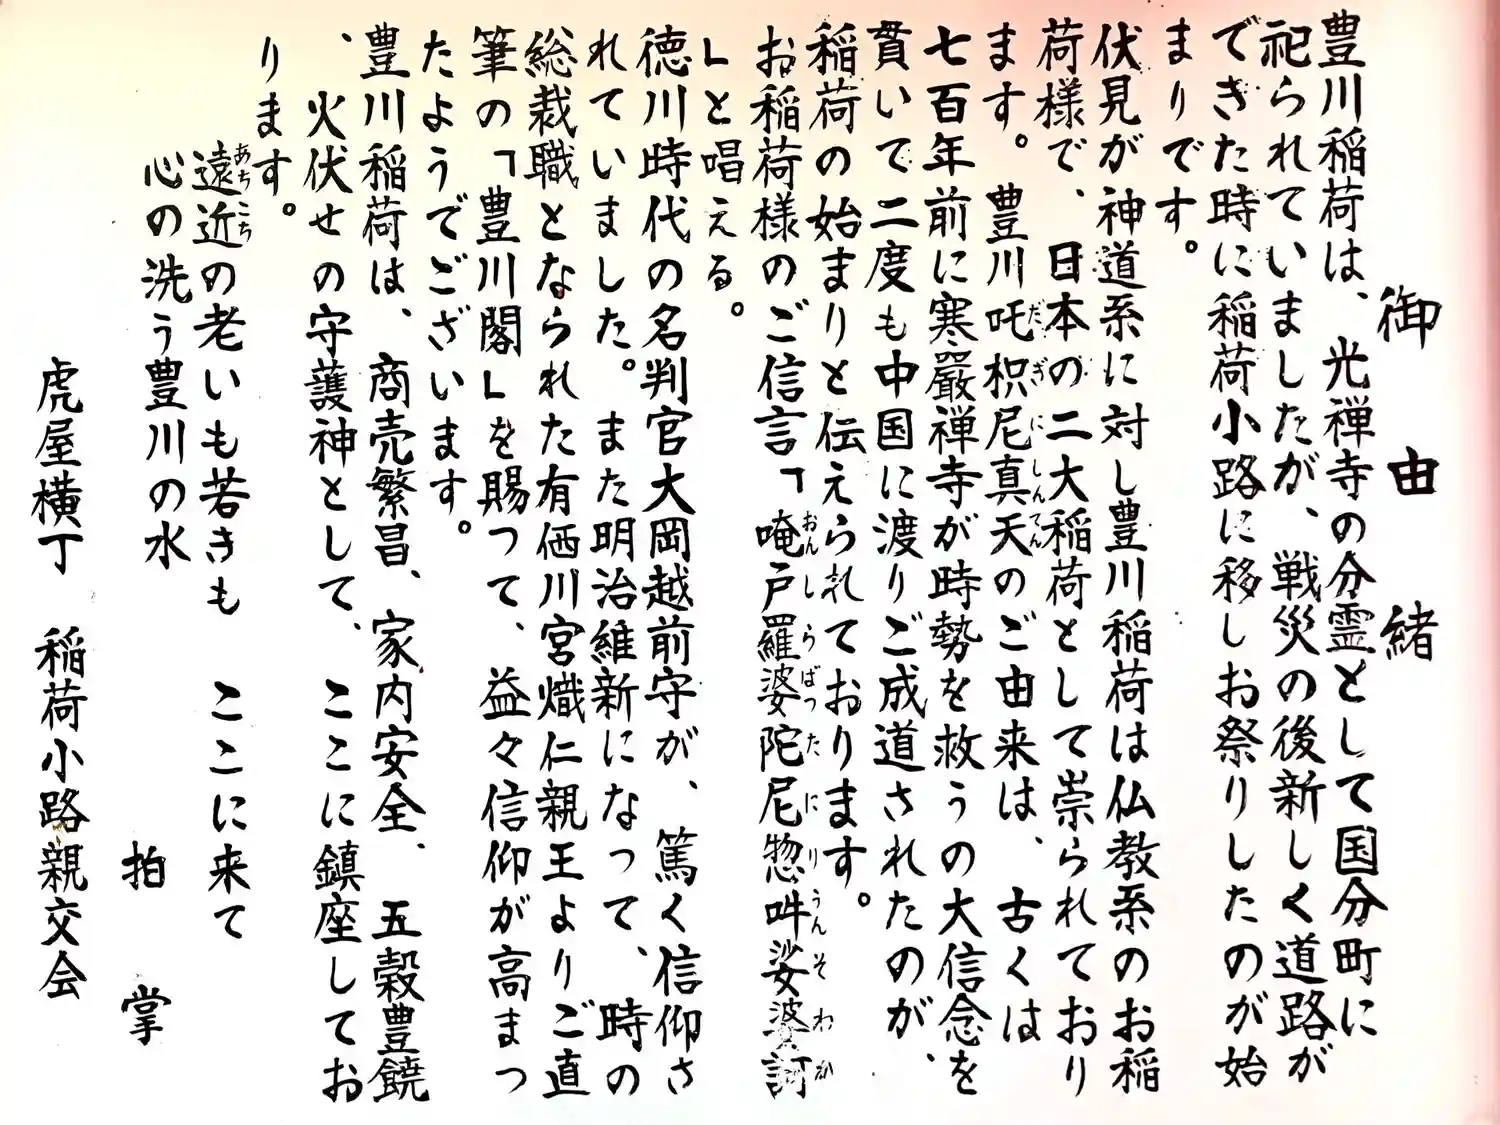 御由緒
豊川稲荷は、光禅寺の分霊として国分町に
祀られていましたが、戦災の後新しく道路が
できた時に稲荷小路に移しお祭りしたのが始
まりです。
伏見が神道系に対し豊川稲荷は仏教系のお稲
荷様で、日本の二大稲荷として崇られており
ます。豊川吒枳尼真天のご由来は、古くは
だぎにしんてん
七百年前に寒巖禅寺が時勢を救うの大信念を
貫いて二度も中国に渡りご成道されたのが、
稲荷の始まりと伝えられております。
お稲荷様のご信言「唵戸羅婆陀尼惣吽娑婆訶
おんしらばったにりうんそわか
」と唱える。
徳川時代の名判官大岡越前守が、篤く信仰さ
れていました。また明治維新になって、時の
総裁職となられた有栖川宮熾仁親王よりご直
筆の「豊川閣」を賜って、益々信仰が高まっ
たようでございます。
豊川稲荷は、商売繁昌、家内安全、五穀豊饒
、火伏せの守護神として、ここに鎮座してお
ります。
遠近の老いも若きも ここに来て
あちこち
心の洗う豊川の水
拍掌
虎屋横丁 稲荷小路親交会